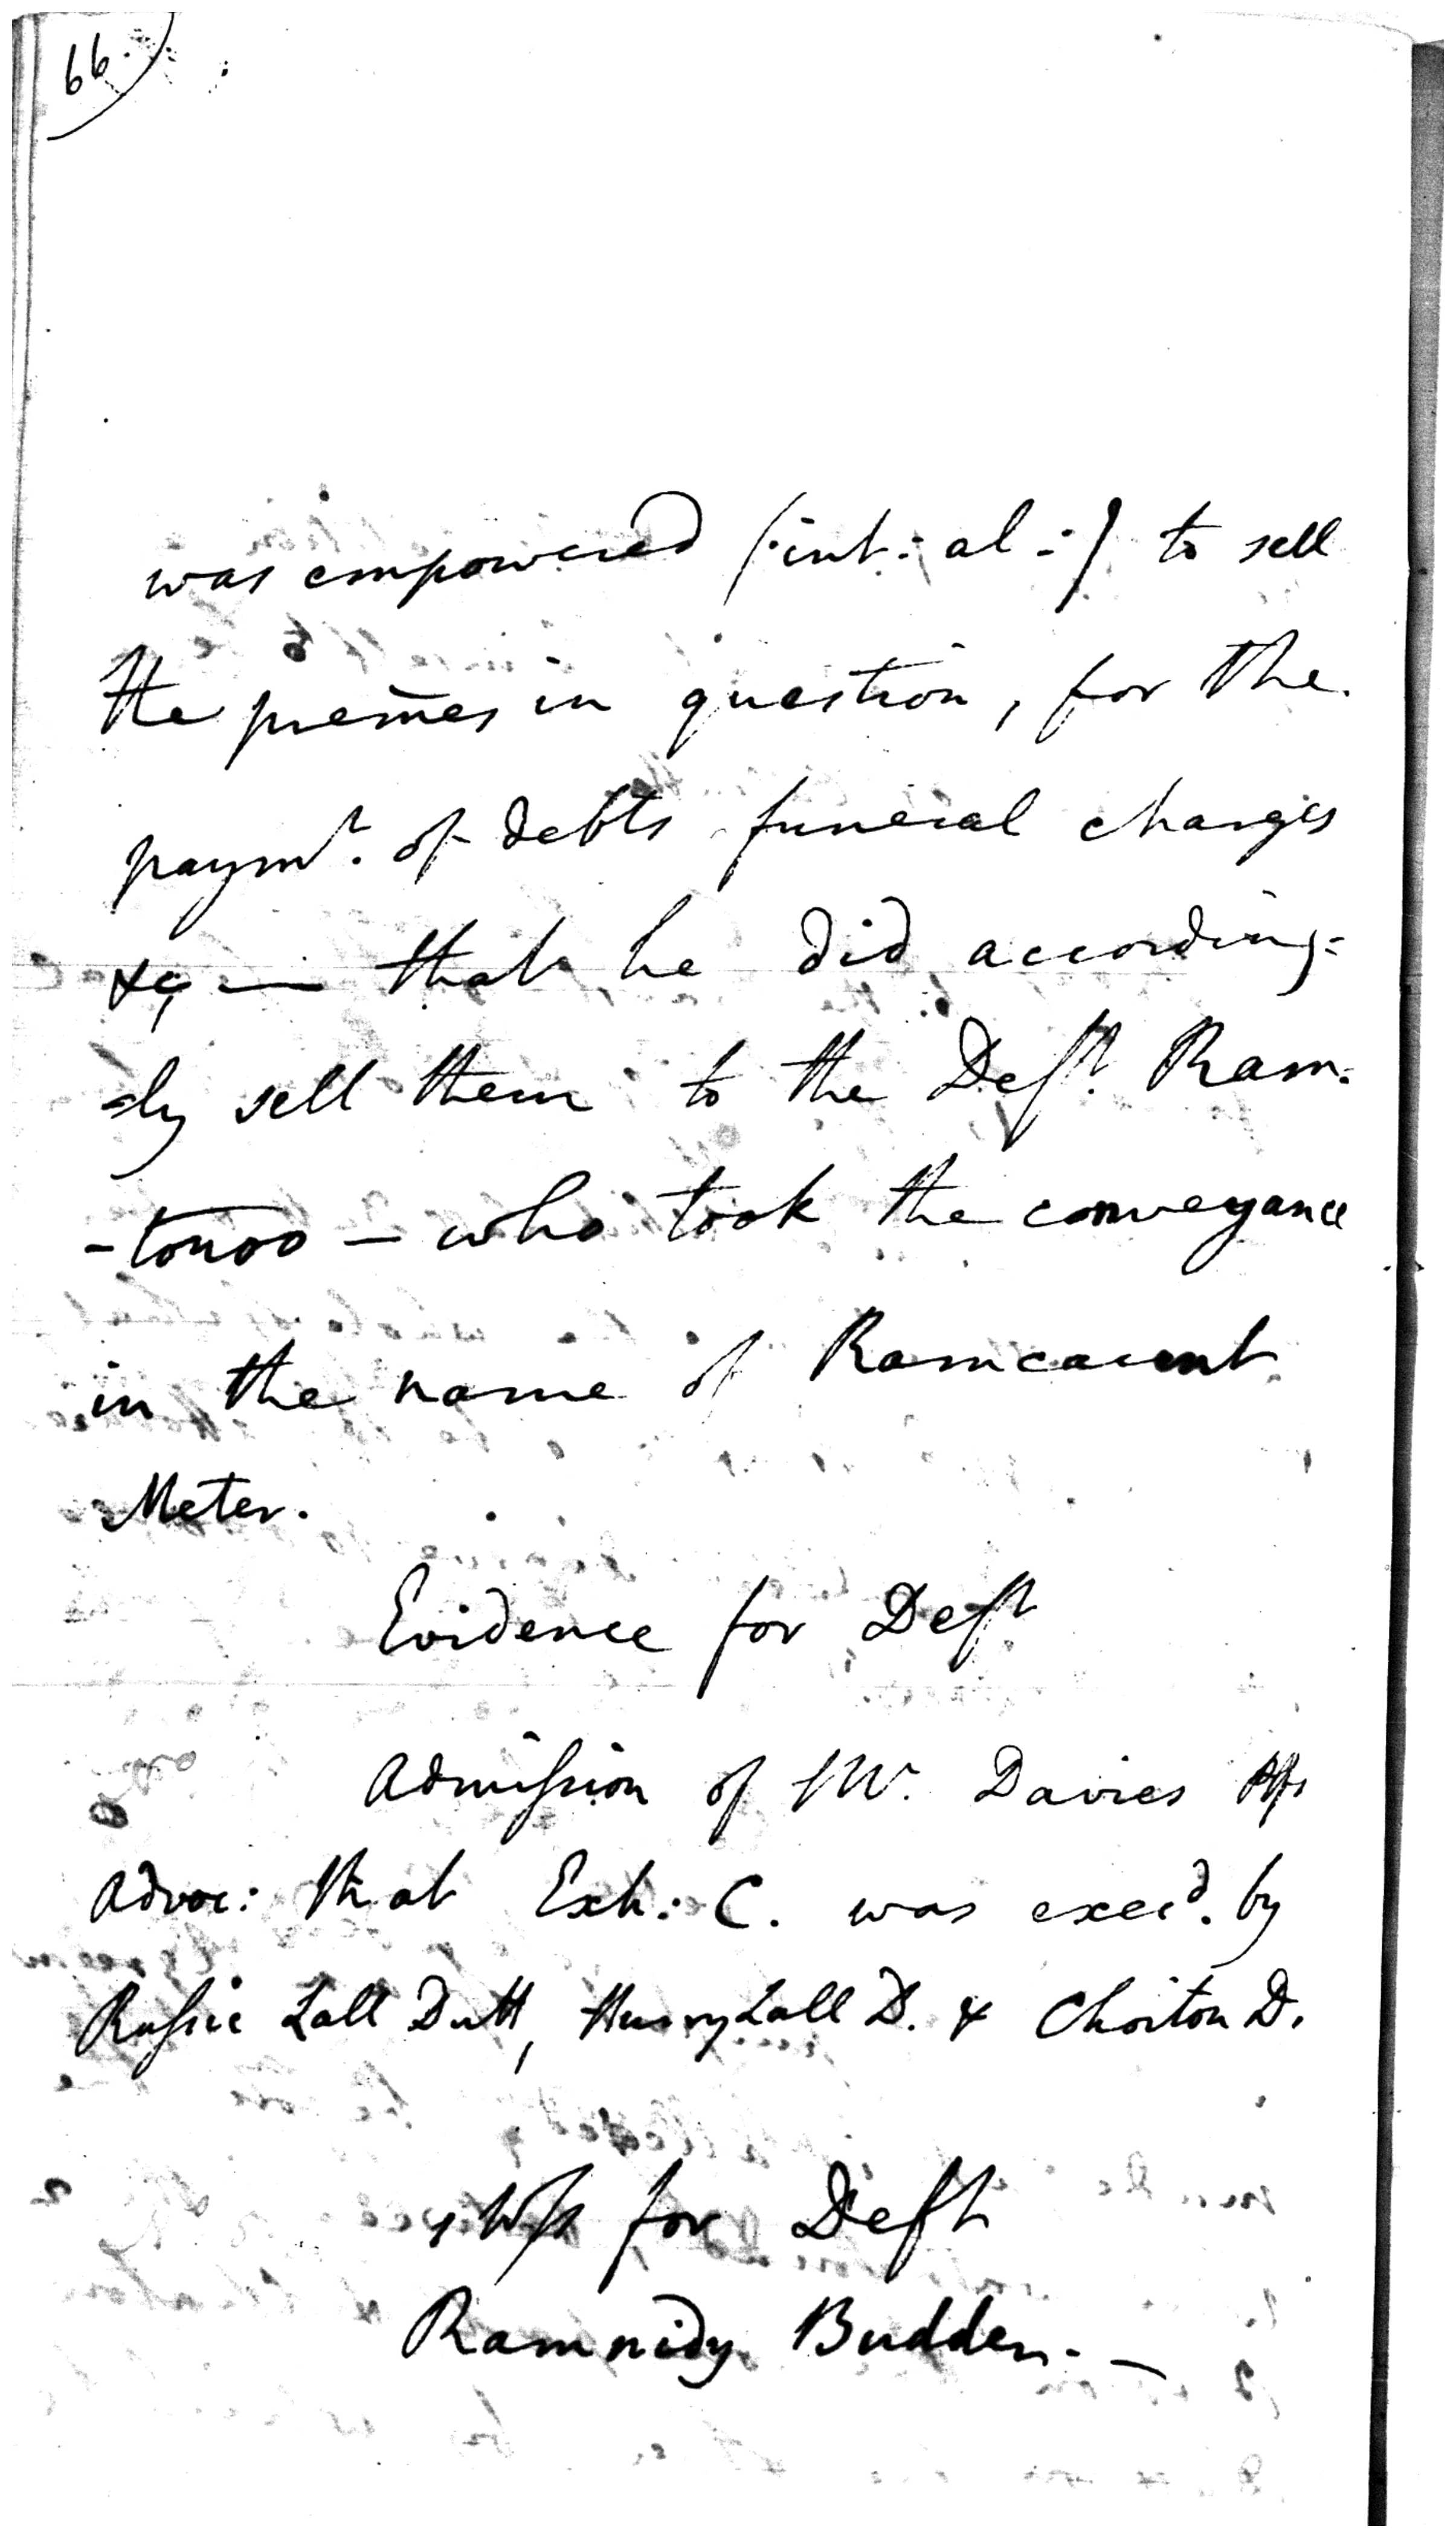 66.
was empowered (:int: al:) to sell
the premēs in question, for the
paymt. of debts funeral charges
&c, — that he did according=
=ly sell them to the Deft. Ram=
-tonoo — who took the conveyance
in the name of Ramcaunt
Meter.
Evidence for Deft
Admission of Mr. Davies
Advoc: that Exh: C. was execd. by
Rassic Lall Dutt, Hurry Lall D. & Choiton D.
1 Wss for Deft
Ramnidy Budden. —